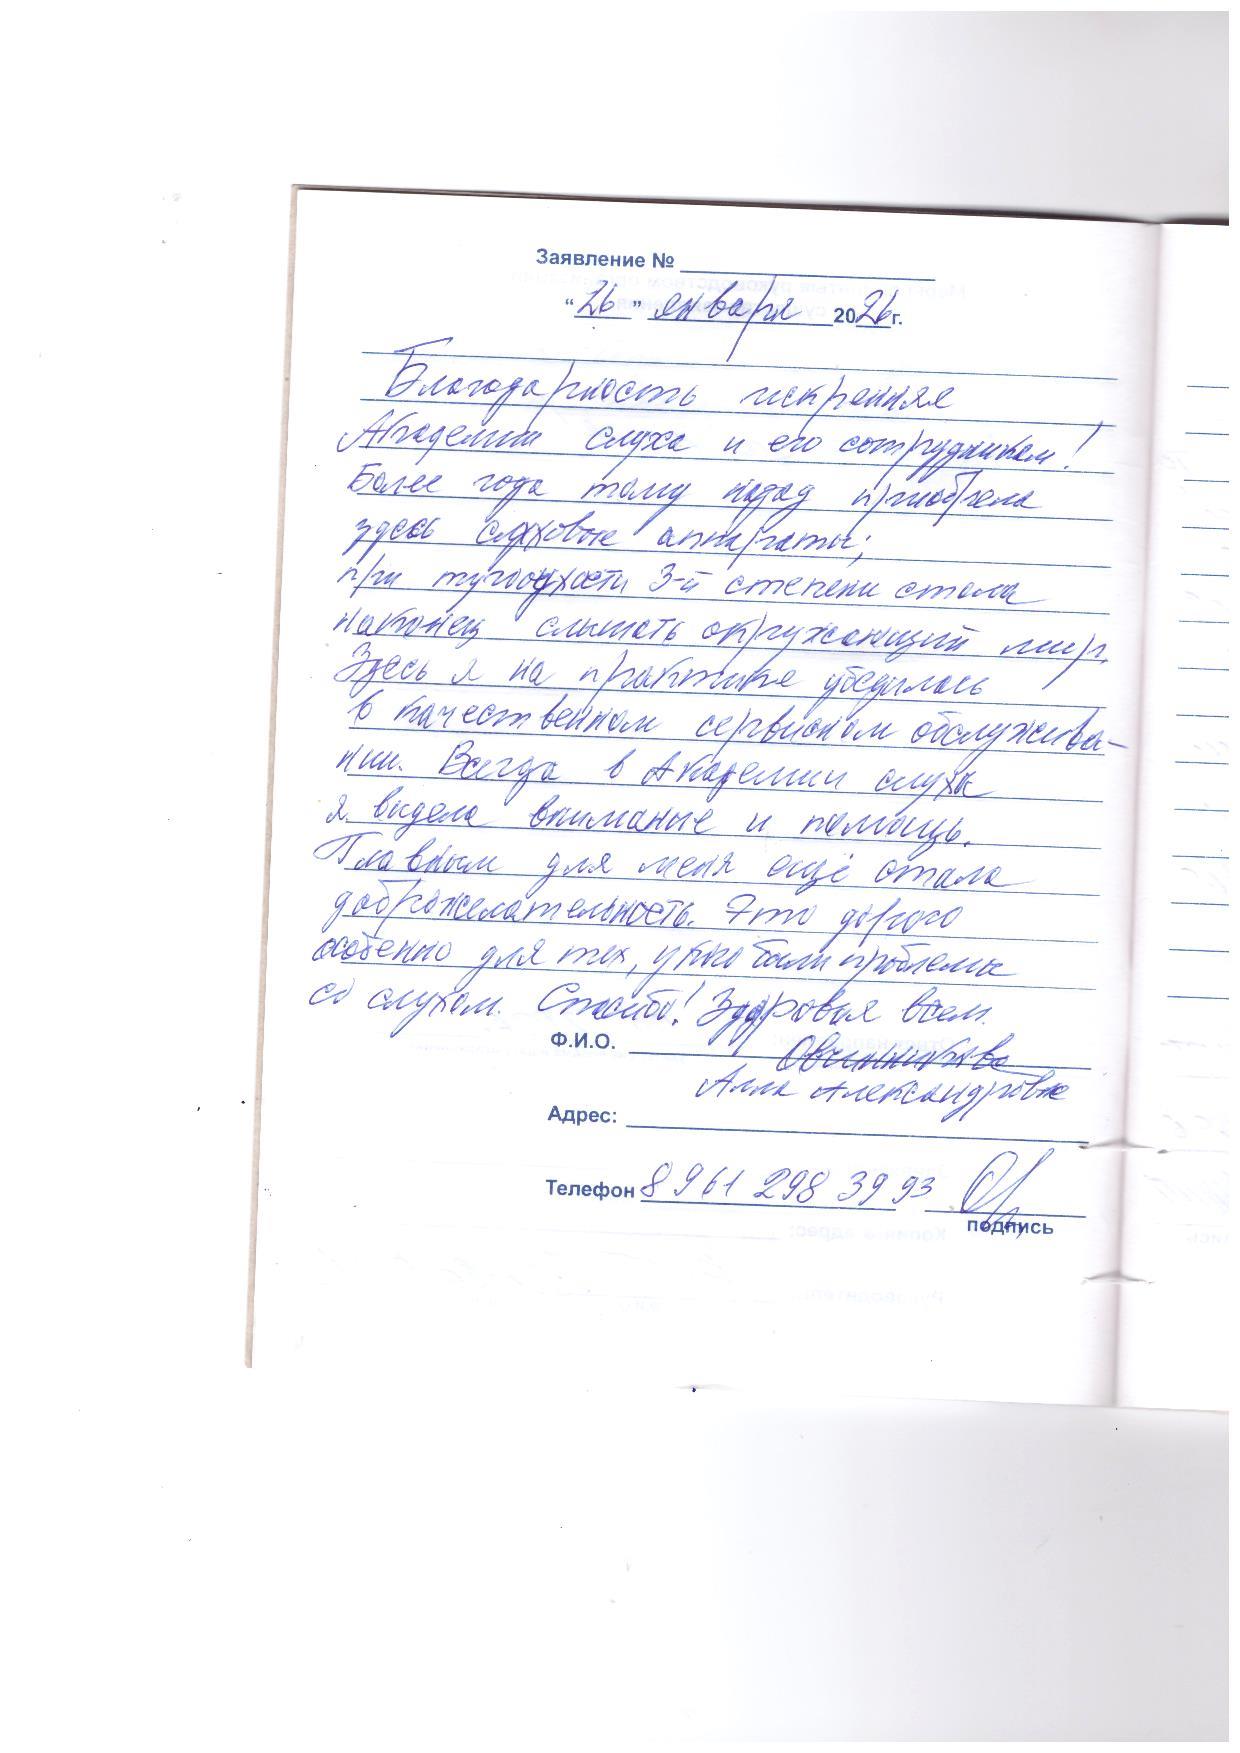 Заявление №
“26” января 2026 г.
Благодарность искренняя
Академии слуха и его сотрудникам!
Более года тому назад приобрела
здесь слуховые аппараты;
при тугоухости 3-й степени стала
наконец слышать окружающий мир.
Здесь я на практике убедилась
в качественном сервисном обслужива-
нии. Всегда в Академии слуха
я видела внимание и помощь.
Главным для меня ещё стала
доброжелательность. Это дорого
особенно для тех, у кого были проблемы
со слухом. Спасибо! Здоровья всем.
Ф.И.О. Овчинникова
Алла Александровна
Адрес:
Телефон 8 961 298 39 93
подпись